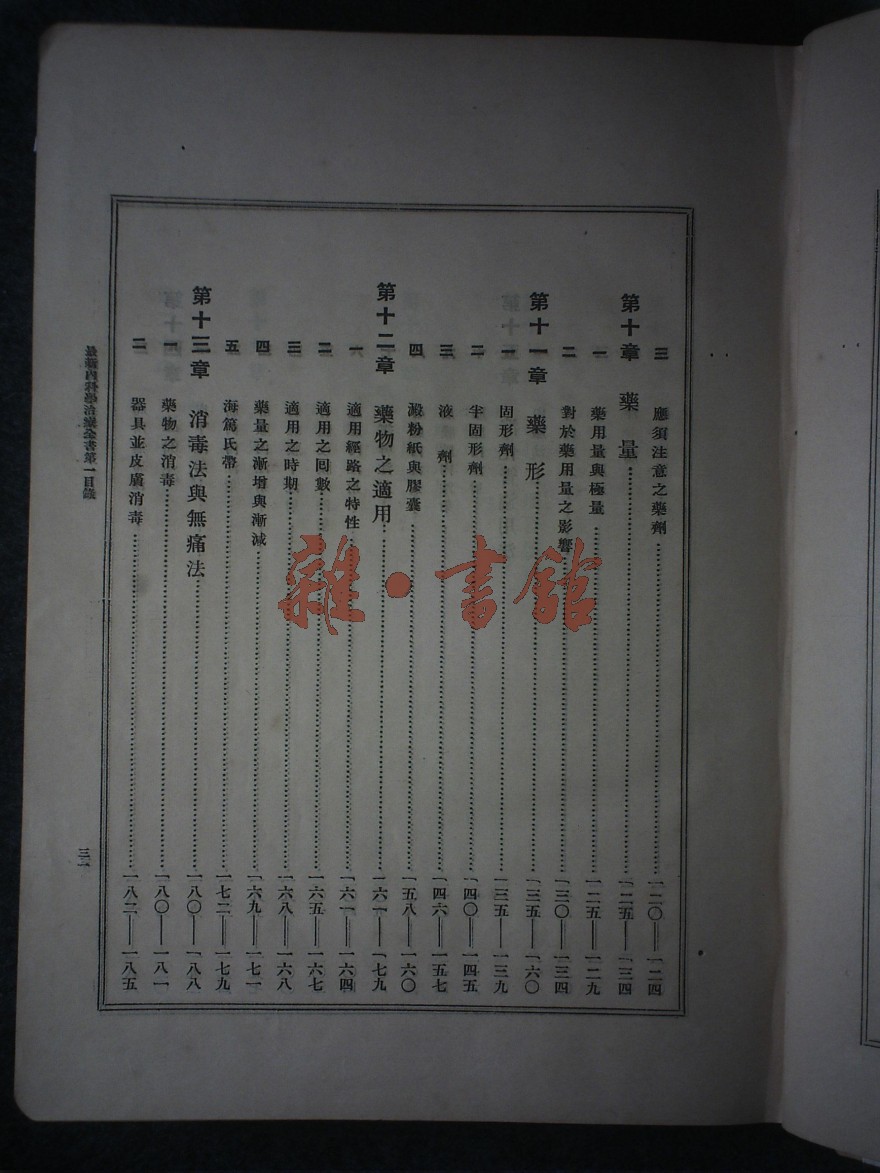 三 應須注意之藥劑…一二〇——一二四
第十章 藥量…一二五——一三四
一 藥用量與極量…一二五——一二九
二 對於藥用量之影響…一三〇——一三四
第十一章 藥形…一三五——一六〇
一 固形劑…一三五——一三九
二 半固形劑…一四〇——一四五
三 液劑…一四六——一五七
四 澱粉紙與膠囊…一五八——一六〇
第十二章 藥物之適用…一六一——一七九
一 適用經路之特性…一六一——一六四
二 適用之回數…一六五——一六七
三 適用之時期…一六八——一六八
四 藥量之漸增與漸減…一六九——一七一
五 海篇氏帶…一七二——一七九
第十三章 消毒法與無痛法…一八〇——一八八
一 藥物之消毒…一八〇——一八一
二 器具並皮膚消毒…一八二——一八五
內科學治療全書第一目錄
雜·書館